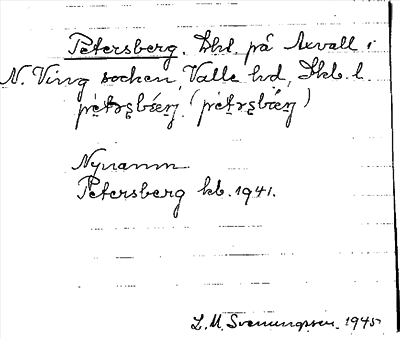 Petersberg. Lhl. på Axvall i
N. Ving socken, Valle hd, Skb. l.
Nynamn
Petersberg kb. 1941.
L. M. Svenungsson. 1945